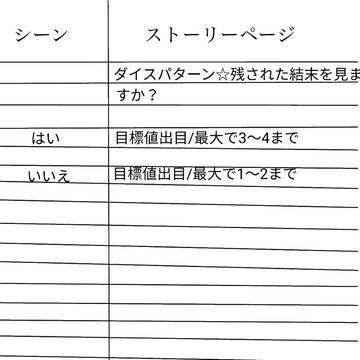 シーン ストーリーページ
ダイスパターン☆残された結末を見ま
すか？
はい 目標値出目/最大で3〜4まで
いいえ 目標値出目/最大で1〜2まで